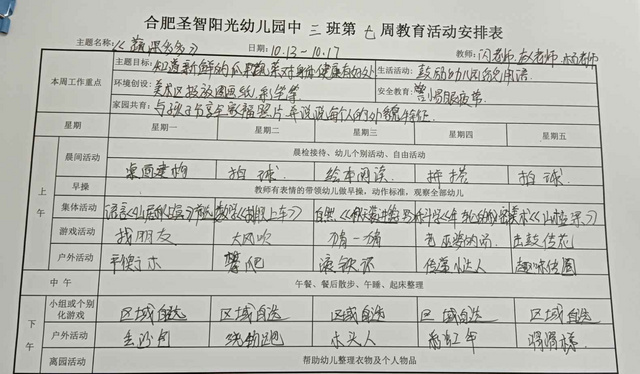 合肥圣智阳光幼儿园中 三 班第 七 周教育活动安排表
主题名称:《蔬果多多》 日期: 10.13-10.17 教师: 闪老师
本周工作重点 主题目标: 知道新鲜的瓜果蔬菜对身体健康有好处 生活活动: 鼓励幼儿
环境创设: 美术区投放图画纸、彩笔等 安全教育:
家园共育: 与孩子分享全家福照片并说说每个人的外貌特征.
星期 星期一 星期二 星期三 星期四 星期五
上午 晨间活动 晨检接待、幼儿个别活动、自由活动
桌面建构 拍球 绘本阅读 拼搭 拍球
早操 教师有表情的带领幼儿做早操,动作标准,观察全部幼儿
集体活动 语言 数学《排队上车》
游戏活动 找朋友 大风吹 猜一猜 击鼓传花
户外活动 平衡木 攀爬 滚铁环 趣味传圈
中午 午餐、餐后散步、午睡、起床整理
下午 小组或个别化游戏 区域自选 区域自选 区域自选 区域自选 区域自选
户外活动 丢沙包 绕物跑 木头人 滑滑梯
离园活动 帮助幼儿整理衣物及个人物品